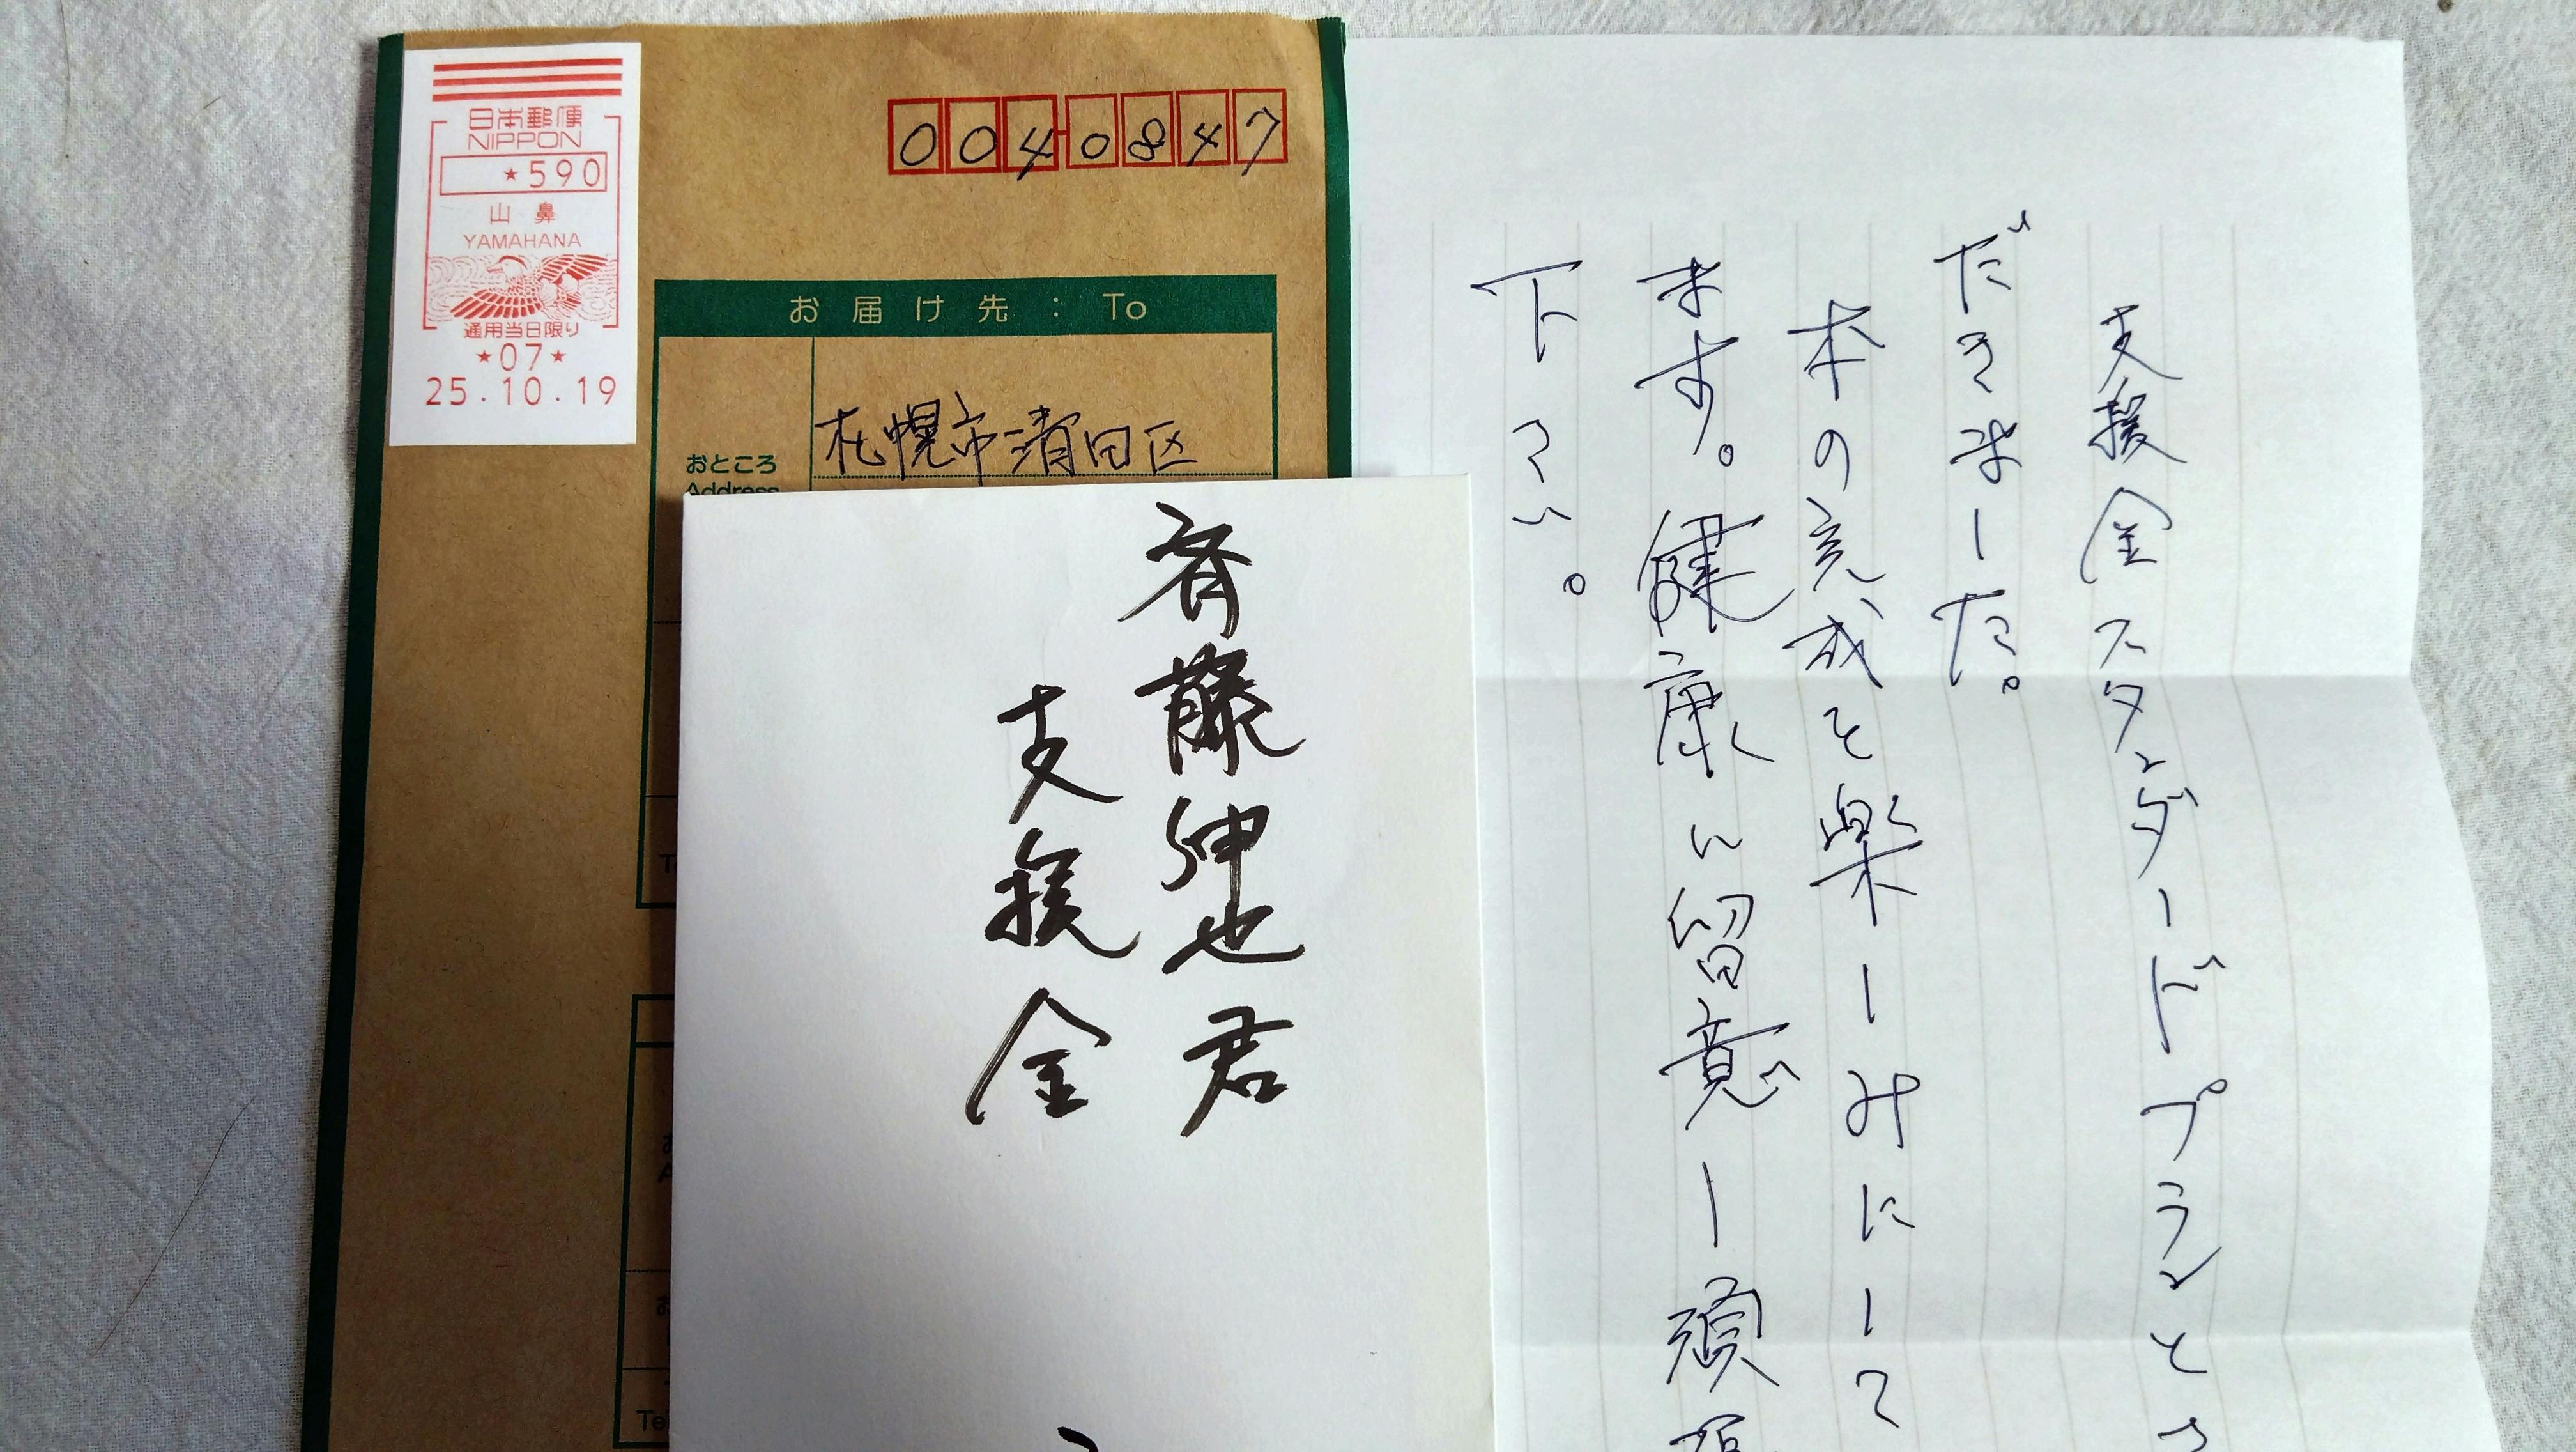 日本郵便
NIPPON
★590
山鼻
YAMAHANA
通用当日限り
★07★
25.10.19
0040847
お届け先:To
おところ
Address
札幌市清田区
斉藤紳也君
支援金
支援金スタンダードプランと
だきました。
本の完成を楽しみにして
ます。健康に留意し頑張
下さい。